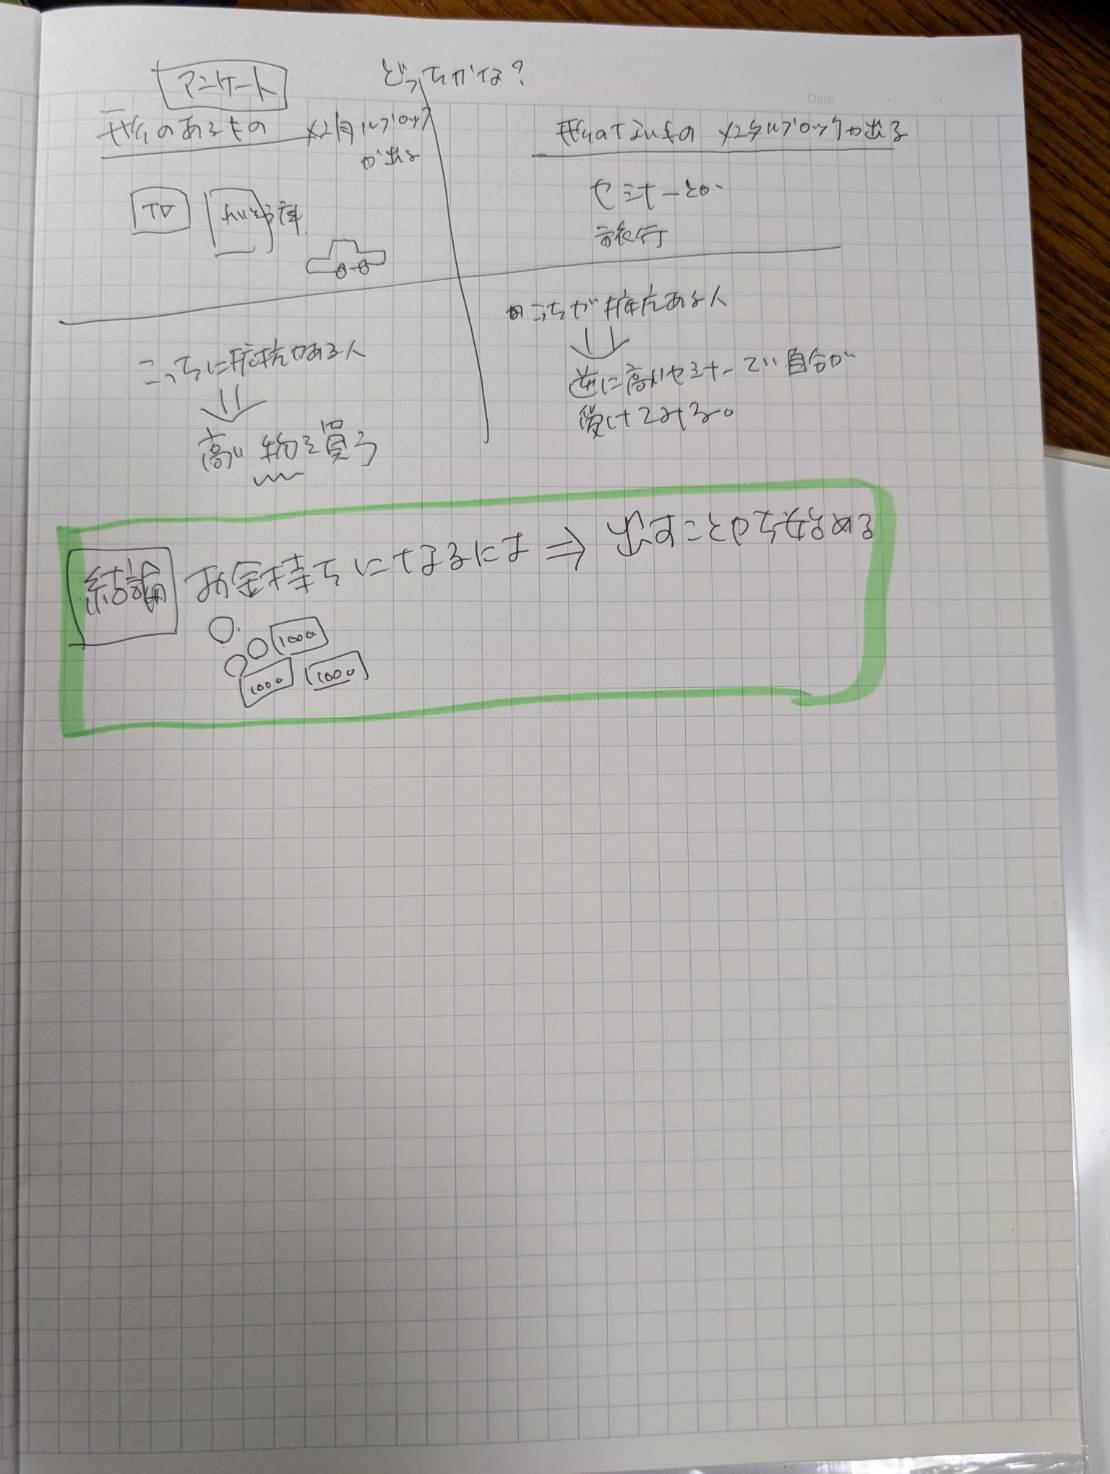 アンケート
どっちかな?
形のあるもの メンタルブロック
が出る
TV
冷蔵庫
こっちに抵抗のある人
高い物を買う
形のないもの メンタルブロックが出る
セミナーとか
旅行
こっちが抵抗ある人
逆に高いセミナーでい自分が
受けてみる。
結論 お金持ちになるには ⇒ 出すことから始める
1000
1000 1000
Date